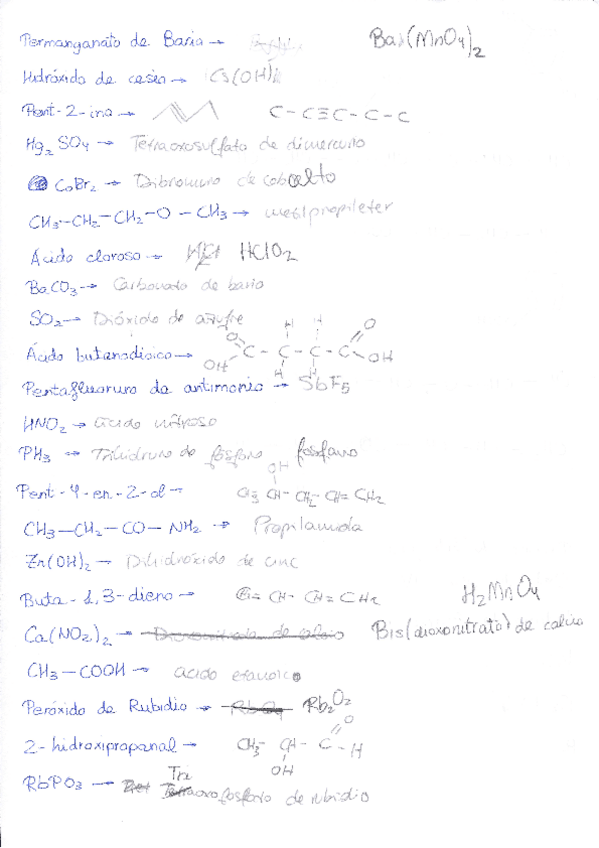 Permanganato de Bario → Ba(MnO4)2
Hidróxido de cesio → Cs(OH)
Pent-2-ino → C-C≡C-C-C
Hg2SO4 → Tetraoxosulfato de dimercurio
CoBr2 → Dibromuro de cobalto
CH3-CH2-CH2-O-CH3 → metilpropileter
Ácido cloroso → HClO2
BaCO3 → Carbonato de bario
SO2 → Dióxido de azufre
Ácido butanodioico → O OH C-C-C-C O OH H H H H
Pentafluoruro de antimonio → SbF5
HNO2 → ácido nitroso
PH3 → Trihidruro de fósforo fosfano
Pent-4-en-2-ol → CH3-CH-CH2-CH=CH2 OH
CH3-CH2-CO-NH2 → Propilamida
Zn(OH)2 → Dihidróxido de cinc
Buta-1,3-dieno → C=CH-CH=CH2 H2MnO4
Ca(NO2)2 → Bis(dioxonitrato) de calcio
CH3-COOH → ácido etanoico
Peróxido de Rubidio → Rb2O2
2-hidroxipropanal → CH3-CH-C-H O OH
RbPO3 → Trioxofosfato de rubidio